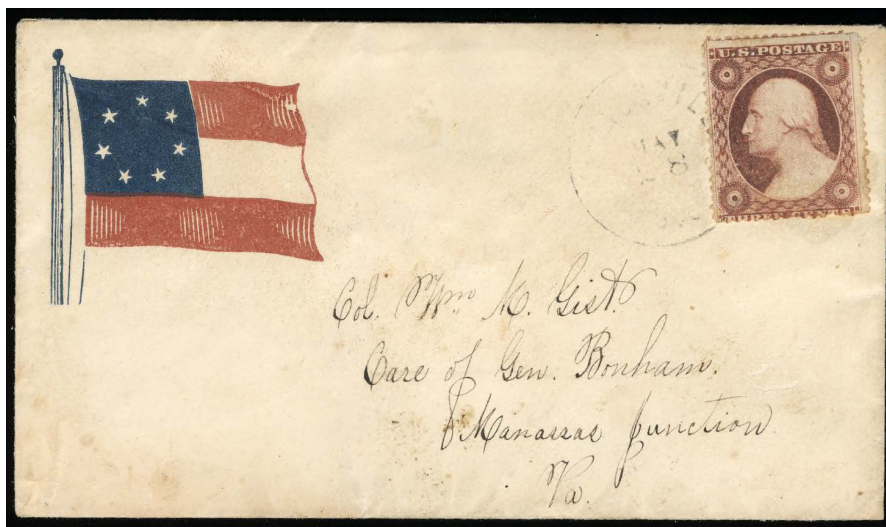 U.S. POSTAGE
THREE CENTS
MAY
8
Col. Wm M. Gist.
Care of Gen. Bonham.
Manassas Junction
Va.